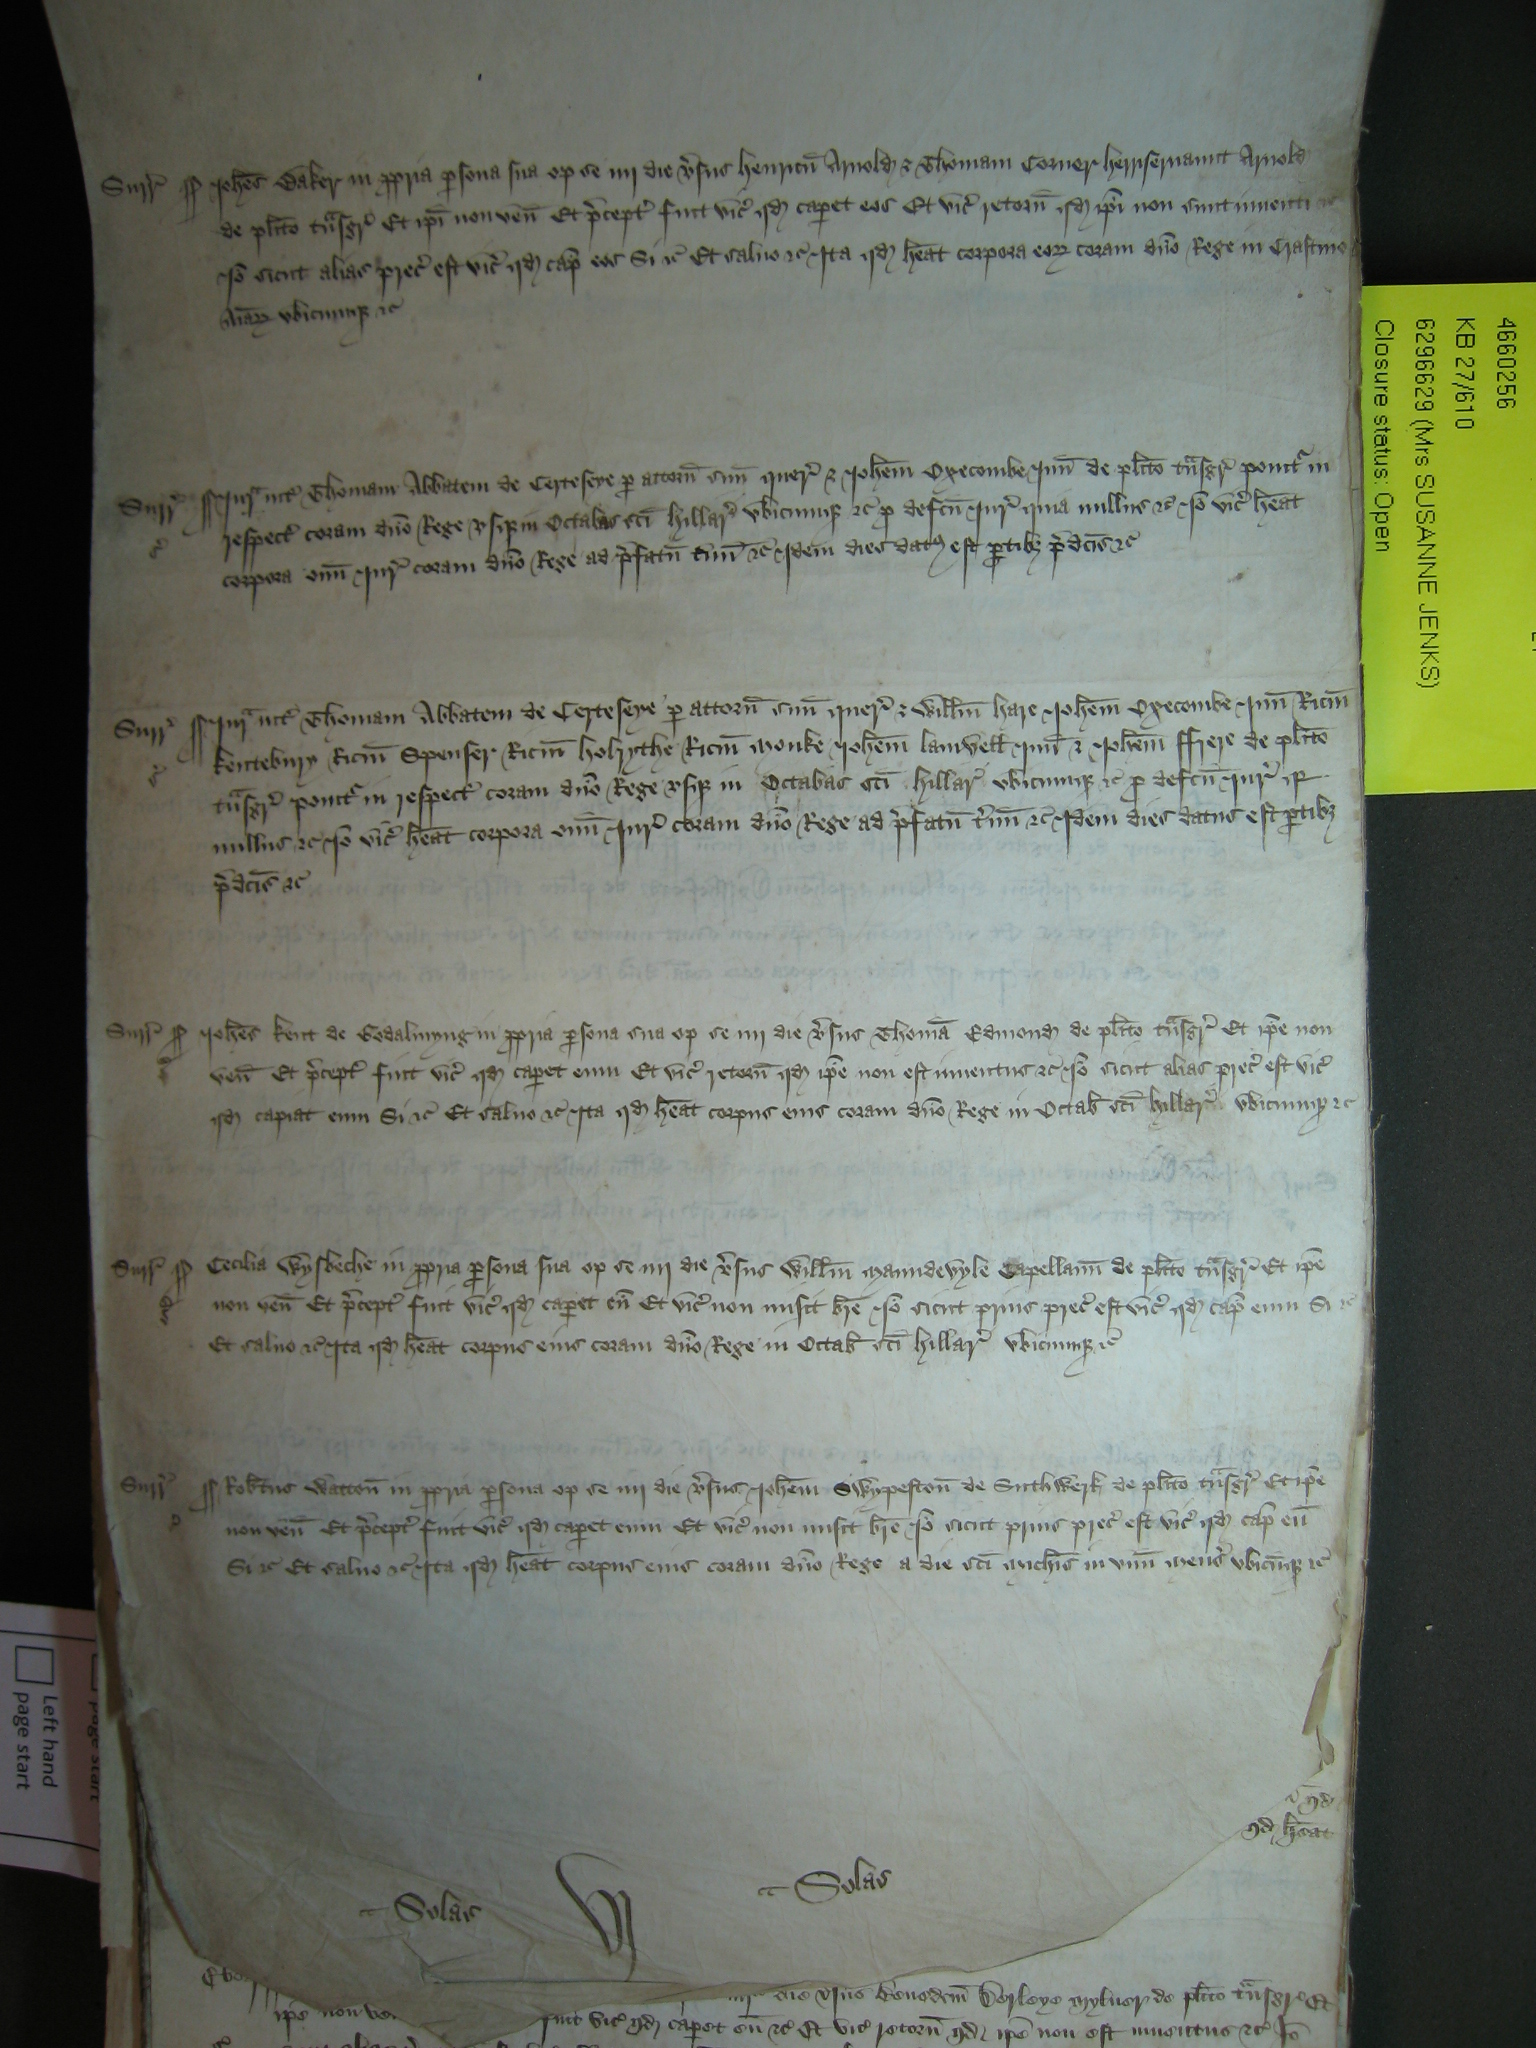 Surr̃ Joh̃es Baker in ꝓpria ꝑsona sua op se iiij die v̉sus Henricũ Arnold & Thomam Corner Arnold
de pl̃ito tũsgr̃ Et ip̃i non veñ Et p̃cept̃ fuit vic̃ qd caꝑet eos Et vic̃ retorñ qd ip̃i non sunt inventi &c̃
Jõ sicut alias prec̃ est vic̃ qd cap̃ eos Si &c̃ Et salvo &c̃ Ita qd h̃eat corpora eoꝝ coram dño Rege in Crastino
Aĩaꝝ ubicumqꝫ &c̃
Surr̃ Jur̃ int̃ Thomam Abbatem de Certeseye ꝑ attorñ suũ quer̃ & Joh̃em Oxecombe Juñ de pl̃ito tũsgr̃ ponit̃ in
respect̃ coram dño Rege usqꝫ in Octabas sc̃i Hillar̃ ubicumqꝫ &c̃ ꝓ defc̃u Jur̃ quia nullus &c̃ Jõ vic̃ h̃eat
corpora oĩm Jur̃ coram dño Rege ad p̃fatũ t̃mĩ &c̃ Idem dies datꝰ est ꝑtibꝫ p̃dc̃is &c̃
Surr̃ Jur̃ int̃ Thomam Abbatem de Certeseye ꝑ attorñ suũ quer̃ & Will̃m Hare Joh̃em Oxecombe Juñ Ric̃m
Kentebury Ric̃m Spenser Ric̃m Holrythe Ric̃m Monke Joh̃em Juñ & Joh̃em ffrere de pl̃ito
tũsgr̃ ponit̃ in respect̃ coram dño Rege usqꝫ in Octabas sc̃i Hillar̃ ubicumqꝫ &c̃ ꝓ defc̃u Jur̃ qꝛ
nullus &c̃ Jõ vic̃ h̃eat corpora oĩm Jur̃ coram dño Rege ad p̃fatũ t̃mĩ &c̃ Idem dies datus est ꝑtibꝫ
p̃dc̃is &c̃
Surr̃ Joh̃es Kent de Godalmyng in ꝓpria ꝑsona sua op se iiij die v̉sus Thomã Edmond de pl̃ito tũsgr̃ Et ip̃e non
veñ Et p̃cept̃ fuit vic̃ qd caꝑet eum Et vic̃ retorñ qd ip̃e non est inventus &c̃ Jõ sicut alias prec̃ est vic̃
qd capiat eum Si &c̃ Et salvo &c̃ Ita qd h̃eat corpus eius coram dño Rege in Octab̃ sc̃i Hillar̃ ubicumqꝫ &c̃
Surr̃ Cecilia Wysbeche in ꝓpria ꝑsona sua op se iiij die v̉sus Will̃m Maundevyle Capellanũ de pl̃ito tũsgr̃ Et ip̃e
non veñ Et p̃cept̃ fuit vic̃ qd caꝑet eũ Et vic̃ non misit br̃e Jõ sicut prius prec̃ est vic̃ qd cap̃ eum Si &c̃
Et salvo &c̃ Ita qd h̃eat corpus eius coram dño Rege in Octab̃ sc̃i Hillar̃ ubicumqꝫ &c̃
Surr̃ Rob̃tus Wattoñ in ꝓpria ꝑsona op se iiij die v̉sus Joh̃em Swypestoñ de Suthwerk de pl̃ito tũsgr̃ Et ip̃e
non veñ Et p̃cept̃ fuit vic̃ qd caꝑet eum Et vic̃ non misit br̃e Jõ sicut prius prec̃ est vic̃ qd cap̃ eũ
Si &c̃ Et salvo &c̃ Ita qd h̃eat corpus eius coram dño Rege a die sc̃i Mich̃is in unũ mens̃ ubicũqꝫ &c̃
qd
qd h̃eat
Solas
Solas
die v̉sus Benedc̃m de pl̃ito tũsgr̃ Et
ip̃e non fuit vic̃ qd caꝑet eũ &c̃ Et vic̃ retorñ qd ip̃e non est inventus &c̃ Jõ
4660256
KB 27/610
6296629 (Mrs SUSANNE JENKS)
Closure status: Open
Left hand
page start
page start